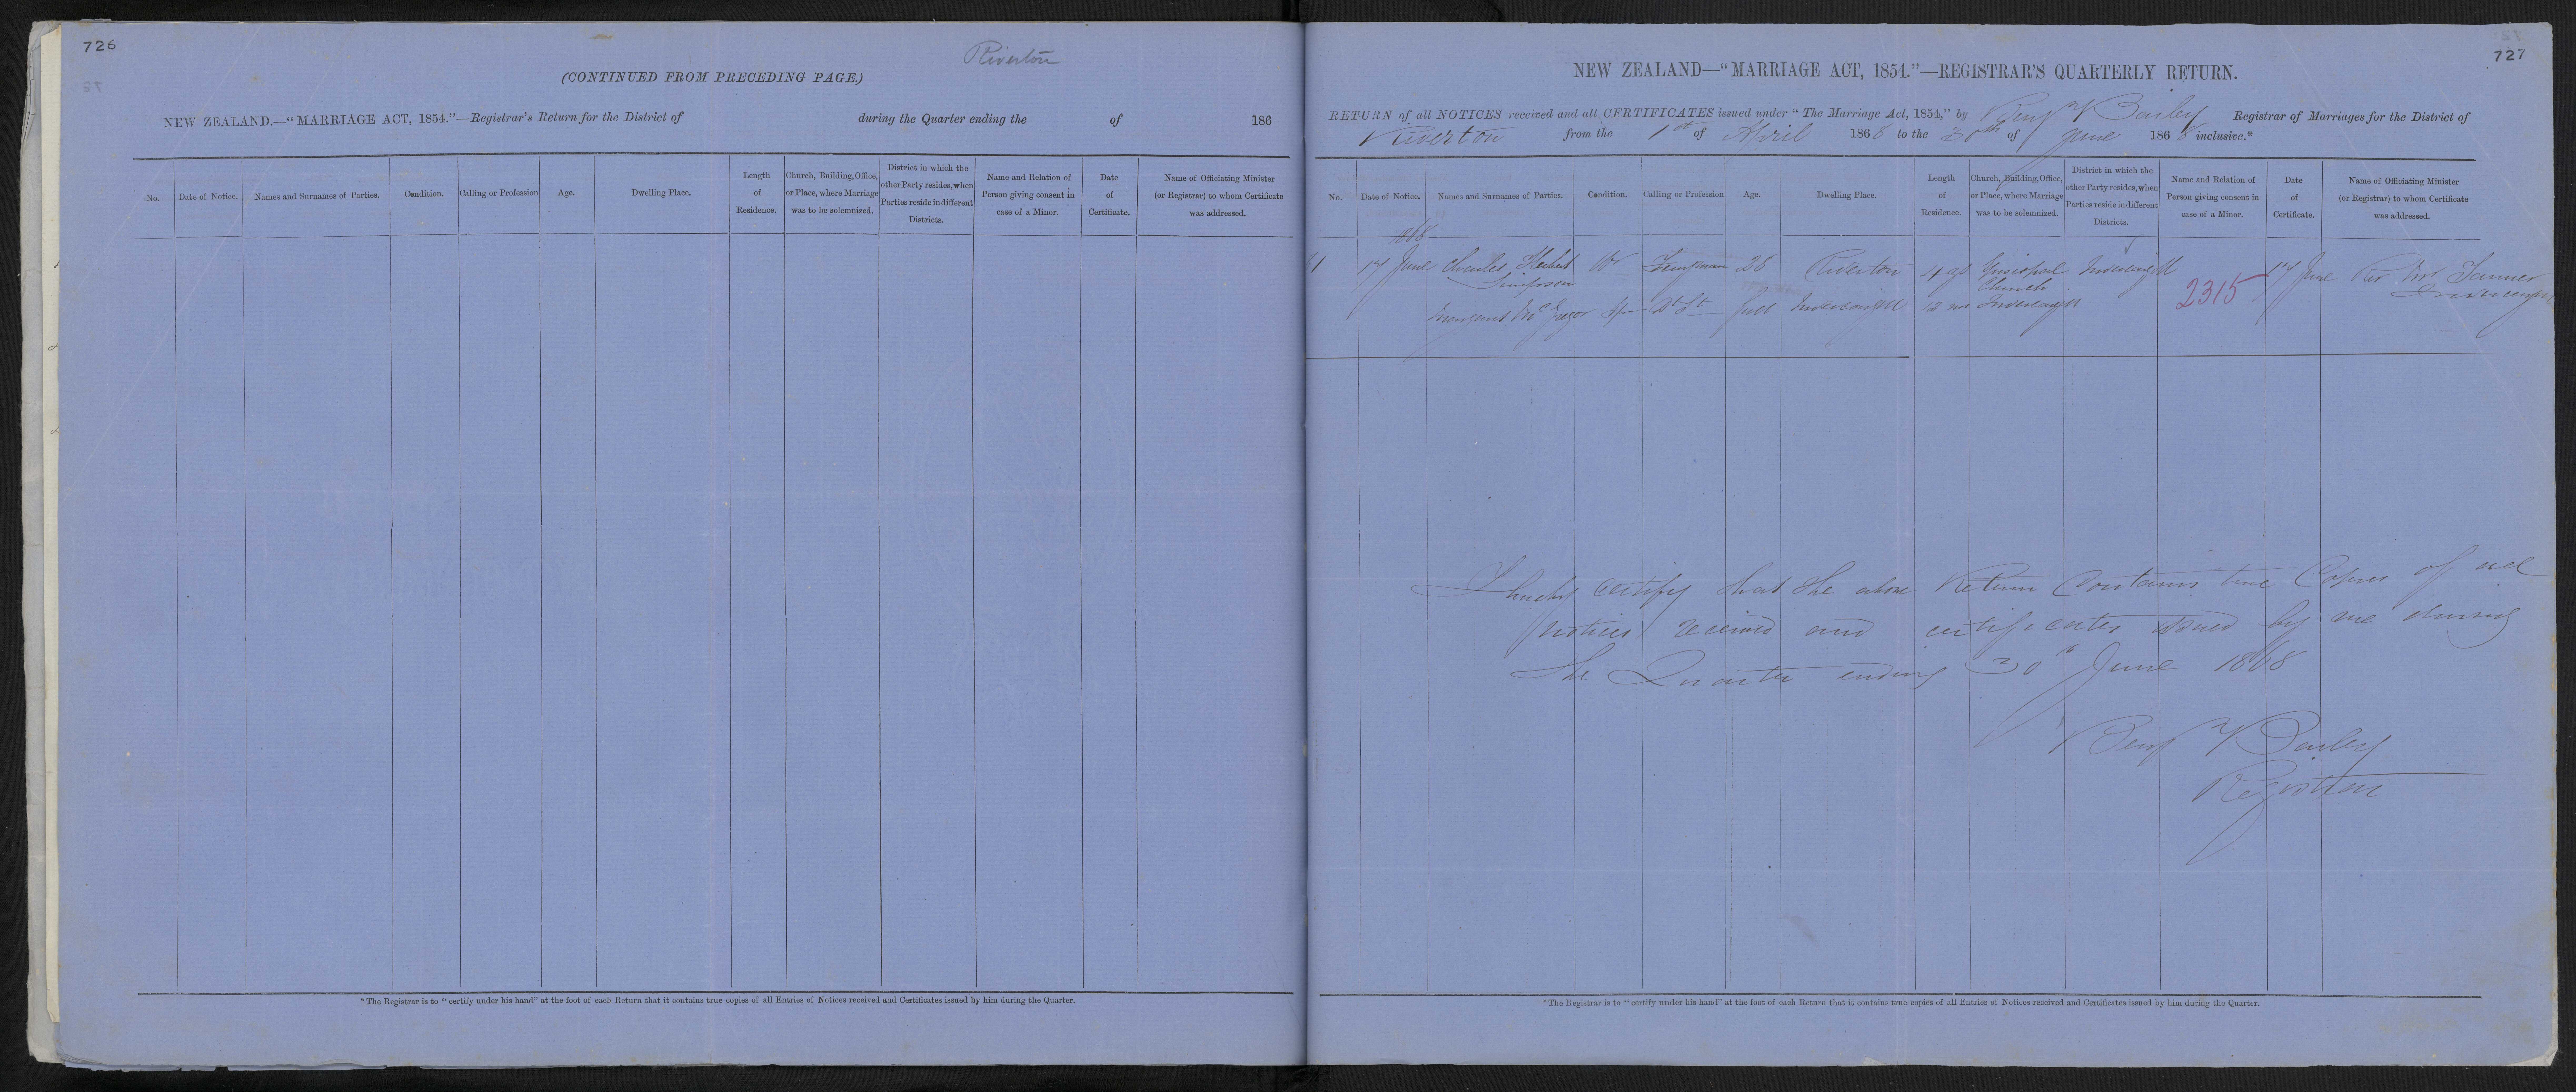 726
Riverton
(CONTINUED FROM PRECEDING PAGE.)
NEW ZEALAND.—"MARRIAGE ACT, 1854."—Registrar's Return for the District of during the Quarter ending the of 186
No. Date of Notice. Names and Surnames of Parties. Condition. Calling or Profession Age. Dwelling Place. Length of Residence. Church, Building, Office, or Place, where Marriage was to be solemnized. District in which the other Party resides, when Parties reside in different Districts. Name and Relation of Person giving consent in case of a Minor. Date of Certificate. Name of Officiating Minister (or Registrar) to whom Certificate was addressed.
*The Registrar is to "certify under his hand" at the foot of each Return that it contains true copies of all Entries of Notices received and Certificates issued by him during the Quarter.
727
NEW ZEALAND—"MARRIAGE ACT, 1854."—REGISTRAR'S QUARTERLY RETURN.
RETURN of all NOTICES received and all CERTIFICATES issued under "The Marriage Act, 1854," by Benj Y Bailey Registrar of Marriages for the District of
Riverton from the 1st of April 1868 to the 30th of June 1868 inclusive.*
No. Date of Notice. Names and Surnames of Parties. Condition. Calling or Profession Age. Dwelling Place. Length of Residence. Church, Building, Office, or Place, where Marriage was to be solemnized. District in which the other Party resides, when Parties reside in different Districts. Name and Relation of Person giving consent in case of a Minor. Date of Certificate. Name of Officiating Minister (or Registrar) to whom Certificate was addressed.
1868
17 June Charles Herbert 28 Riverton Episcopal Invercargill 17 June Rev Mr Tanner
Simpson Church Invercargill
Margaret McGregor Spr full Invercargill Invercargill 2315
I hereby certify that the above Return Contains true Copies of all
notices received and certificates issued by me during
the Quarter ending 30th June 1868
Benj Y Bailey
Registrar
*The Registrar is to "certify under his hand" at the foot of each Return that it contains true copies of all Entries of Notices received and Certificates issued by him during the Quarter.